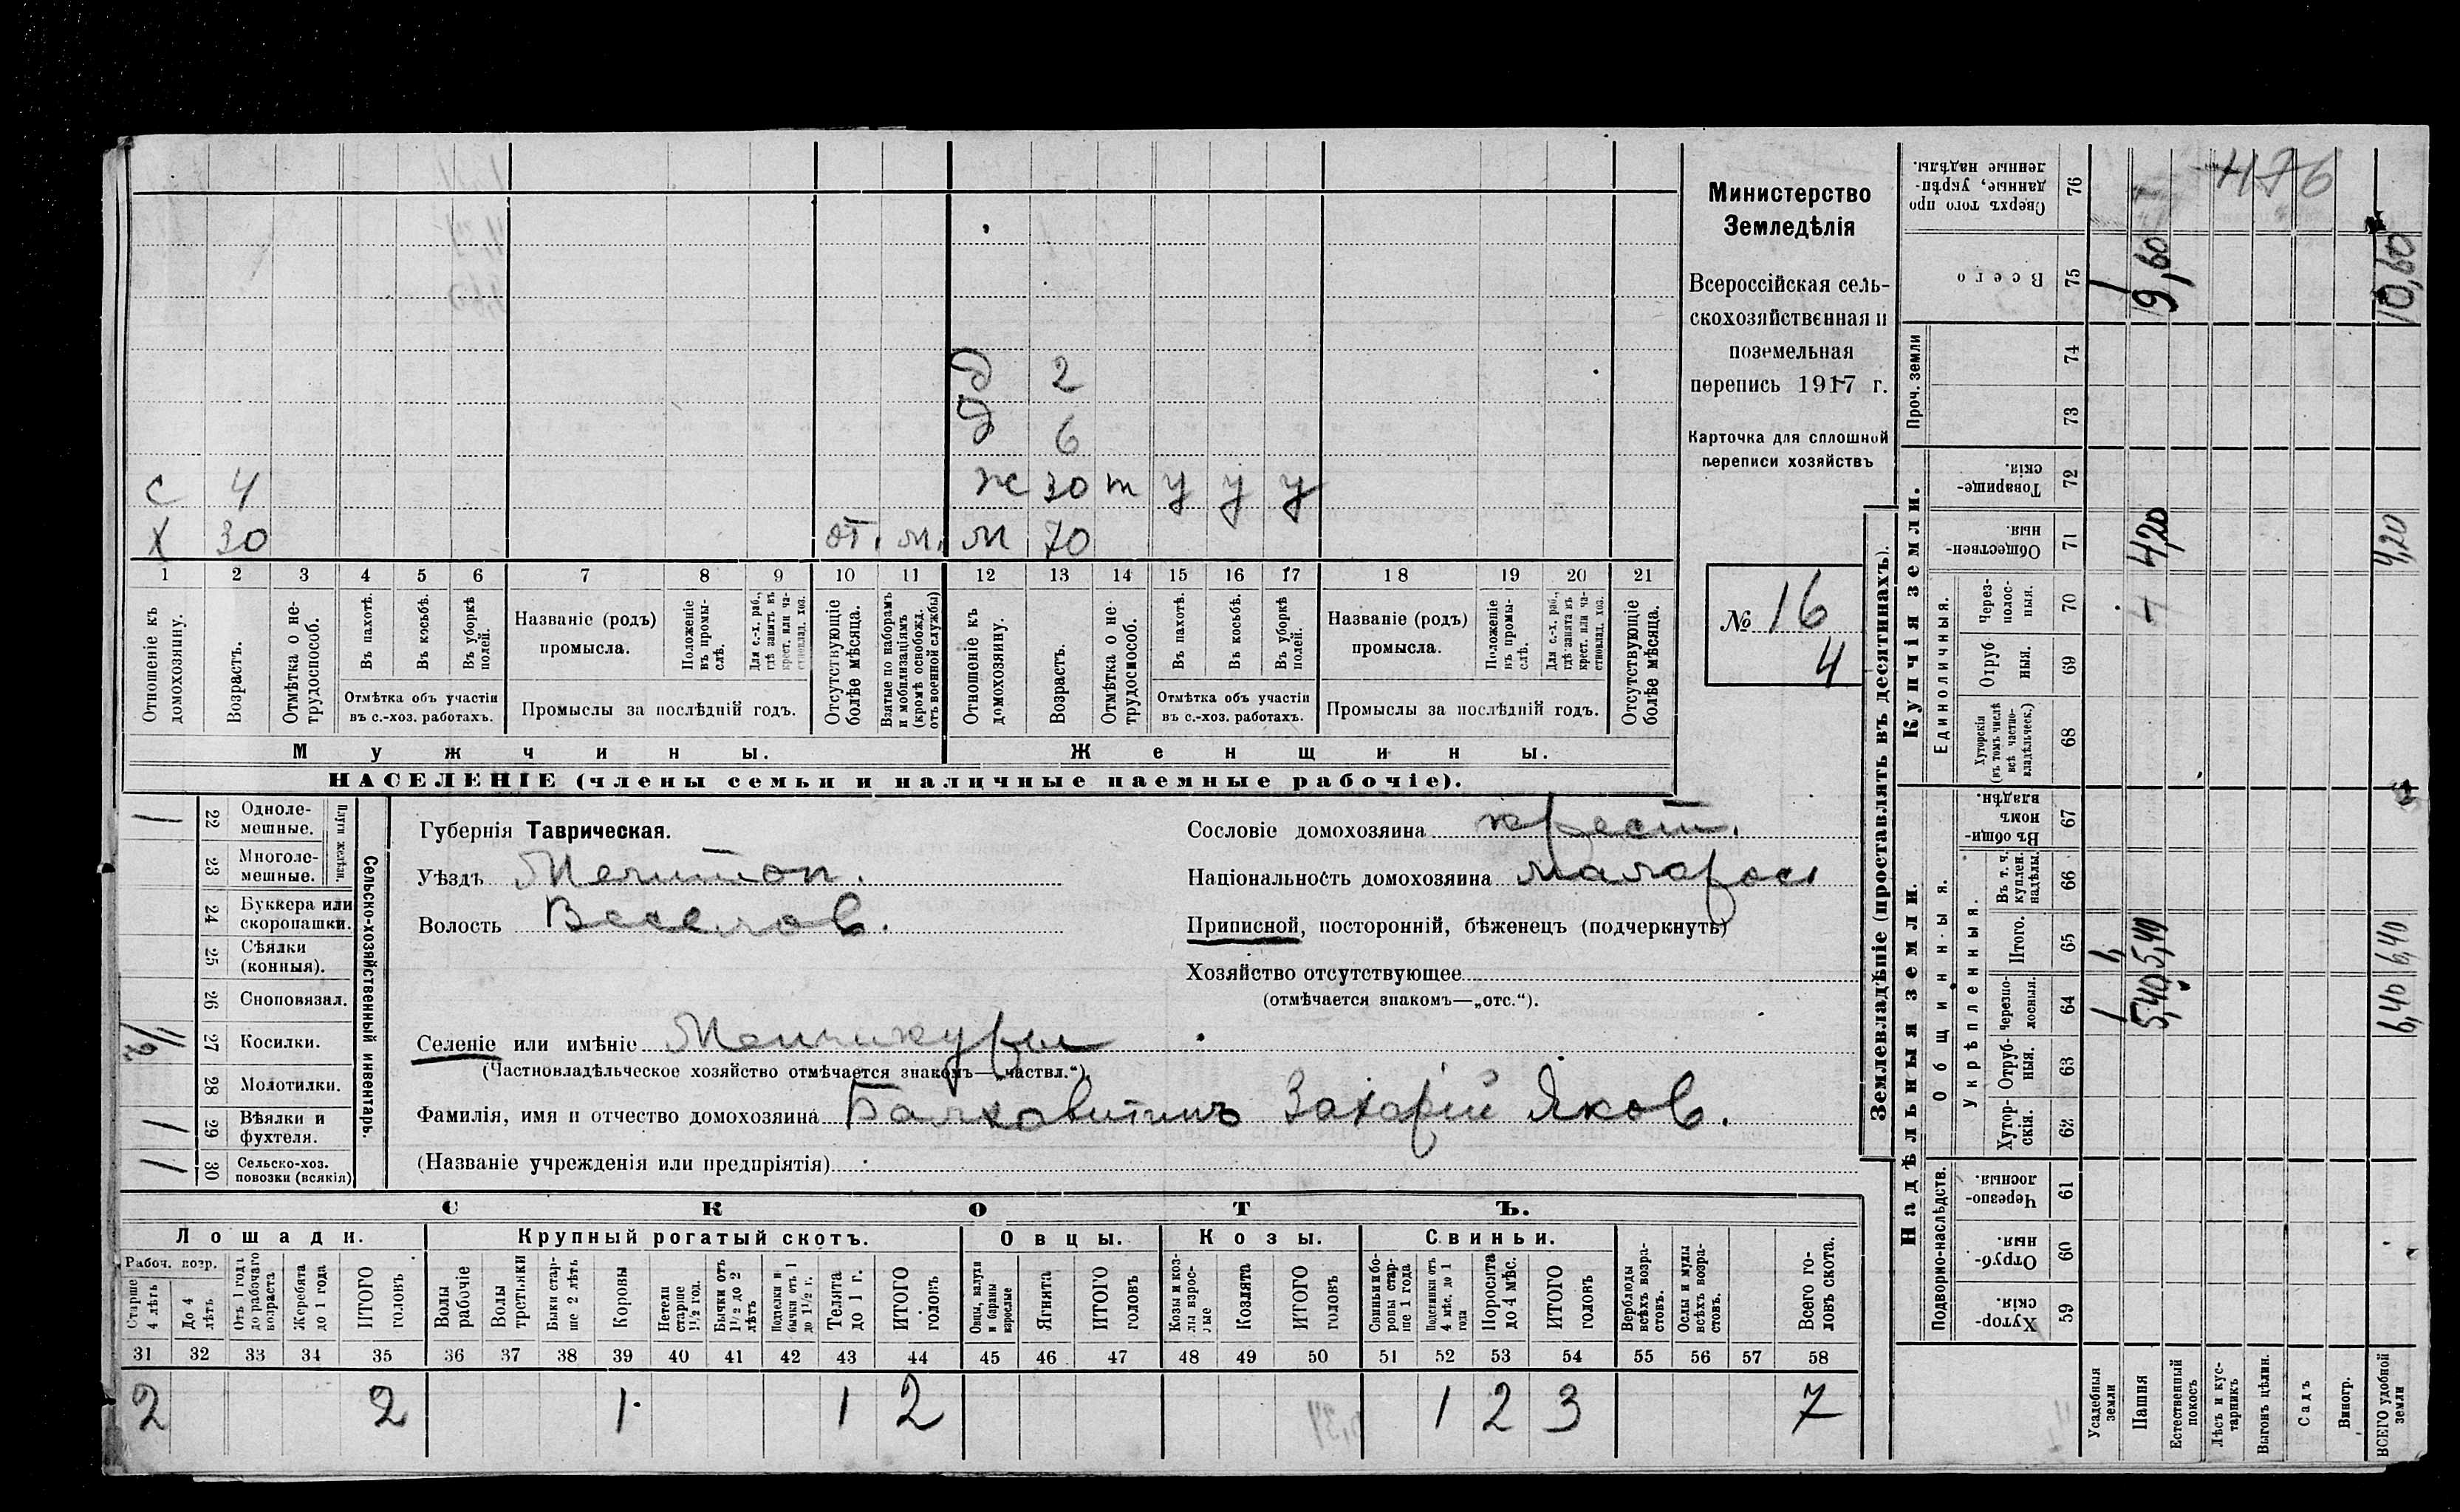 Министерство
Земледѣлія
Всероссійская сель-
скохозяйственная и
поземельная
перепись 1917 г.
Карточка для сплошной
переписи хозяйствъ
№ 16
4
д 2
д 6
с 4 ж 30 т у у у
х 30 от. м. м 70
1 2 3 4 5 6 7 8 9 10 11 12 13 14 15 16 17 18 19 20 21
Отношеніе къ домохозяину.
Возрастъ.
Отмѣтка о не-трудоспособ.
Въ пахотѣ.
Въ косьбѣ.
Въ уборкѣ полей.
Отмѣтка объ участіи
въ с.-хоз. работахъ.
Названіе (родъ)
промысла.
Положеніе въ промы-слѣ.
Для с.-х. раб., гдѣ занятъ въ крест. или ча-стновлад. хоз.
Промыслы за послѣдній годъ.
Отсутствующіе болѣе мѣсяца.
Взятые по наборамъ и мобилизаціямъ (кромѣ освобожд. отъ военной службы)
Отношеніе къ домохозяину.
Возрастъ.
Отмѣтка о не-трудоспособ.
Въ пахотѣ.
Въ косьбѣ.
Въ уборкѣ полей.
Отмѣтка объ участіи
въ с.-хоз. работахъ.
Названіе (родъ)
промысла.
Положеніе въ промы-слѣ.
Для с.-х. раб., гдѣ занята въ крест. или ча-стновлад. хоз.
Промыслы за послѣдній годъ.
Отсутствующіе болѣе мѣсяца.
Мужчины. Женщины.
НАСЕЛЕНІЕ (члены семьи и наличные наемные рабочіе).
Сельско-хозяйственный инвентарь.
Плуги желѣзн.
1 22 Одноле-мешные.
23 Многоле-мешные.
24 Буккера или скоропашки.
25 Сѣялки (конныя).
26 Сноповязал.
27 Косилки.
28 Молотилки.
1 29 Вѣялки и фухтеля.
1 30 Сельско-хоз. повозки (всякія)
Губернія Таврическая.
Уѣздъ Мелитоп.
Волость Веселов.
Сословіе домохозяина крест.
Національность домохозяина малорос
Приписной, посторонній, бѣженецъ (подчеркнуть)
Хозяйство отсутствующее
(отмѣчается знакомъ—„отс.“).
Селеніе или имѣніе Менчикуры
(Частновладѣльческое хозяйство отмѣчается знакомъ—„частвл.“).
Фамилія, имя и отчество домохозяина Балховитинъ Захарій Яков.
(Названіе учрежденія или предпріятія)
СКОТЪ.
Лошади. Крупный рогатый скотъ. Овцы. Козы. Свиньи.
Рабоч. возр.
Старше 4 лѣтъ
До 4 лѣтъ
Отъ 1 года до рабочаго возраста
Жеребята до 1 года
ИТОГО головъ
Волы рабочіе
Волы третьяки
Быки стар-ше 2 лѣтъ
Коровы
Нетели старше 1½ год.
Бычки отъ 1½ до 2 лѣтъ
Подтелки и бычки отъ 1 до 1½ г.
Телята до 1 г.
ИТОГО головъ
Овцы, валухи и бараны взрослые
Ягнята
ИТОГО головъ
Козы и коз-лы взрос-лые
Козлята
ИТОГО головъ
Свиньи и бо-ровы стар-ше 1 года
Подсвинки отъ 4 мѣс. до 1 года
Поросята до 4 мѣс.
ИТОГО головъ
Верблюды всѣхъ возра-стовъ.
Ослы и мулы всѣхъ возра-стовъ.
Всего го-ловъ скота.
31 32 33 34 35 36 37 38 39 40 41 42 43 44 45 46 47 48 49 50 51 52 53 54 55 56 57 58
2 2 1 1 2 1 2 3 7
Землевладѣніе (проставлять въ десятинахъ).
Надѣльныя земли. Купчія земли. Проч. земли
Подворно-наслѣдств.
Общинныя.
Укрѣпленныя.
Единоличныя.
Хутор-скія. 59
Отруб-ныя. 60
Черезпо-лосныя. 61
Хутор-скія. 62
Отруб-ныя. 63
Черезпо-лосныя. 64
Итого. 65
Въ т. ч. куплен. надѣлы. 66
Въ общи-номъ владѣн. 67
Хуторскія (въ томъ числѣ всѣ частно-владѣльческ.) 68
Отруб-ныя. 69
Через-полос-ныя. 70
Обществен-ныя. 71
Товарище-скія. 72
73
74
Всего 75
Сверхъ того про-данные, укрѣп-ленные надѣлы. 76
Усадебныя земли 1 1 1
Пашня 5,40 5,40 4,20 9,60
Естественный покосъ
Лѣсъ и кус-тарникъ
Выгонъ цѣлин.
Садъ
Виногр.
ВСЕГО удобной земли 6,40 6,40 4,20 10,60
476